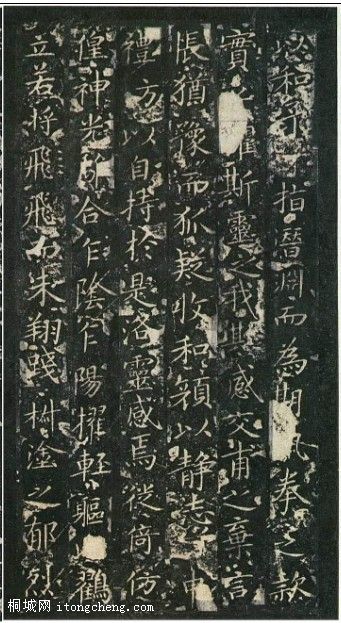 和予指潛淵而為期之款
實懼斯靈之我欺感交甫之棄言
悵猶豫而狐疑收和顏以靜志申
禮方以自持於是洛靈感焉徙倚仿
偟神光離合乍陰乍陽擢輕軀鶴
立若將飛飛而未翔踐椒塗之郁烈
桐城网 itongcheng.com